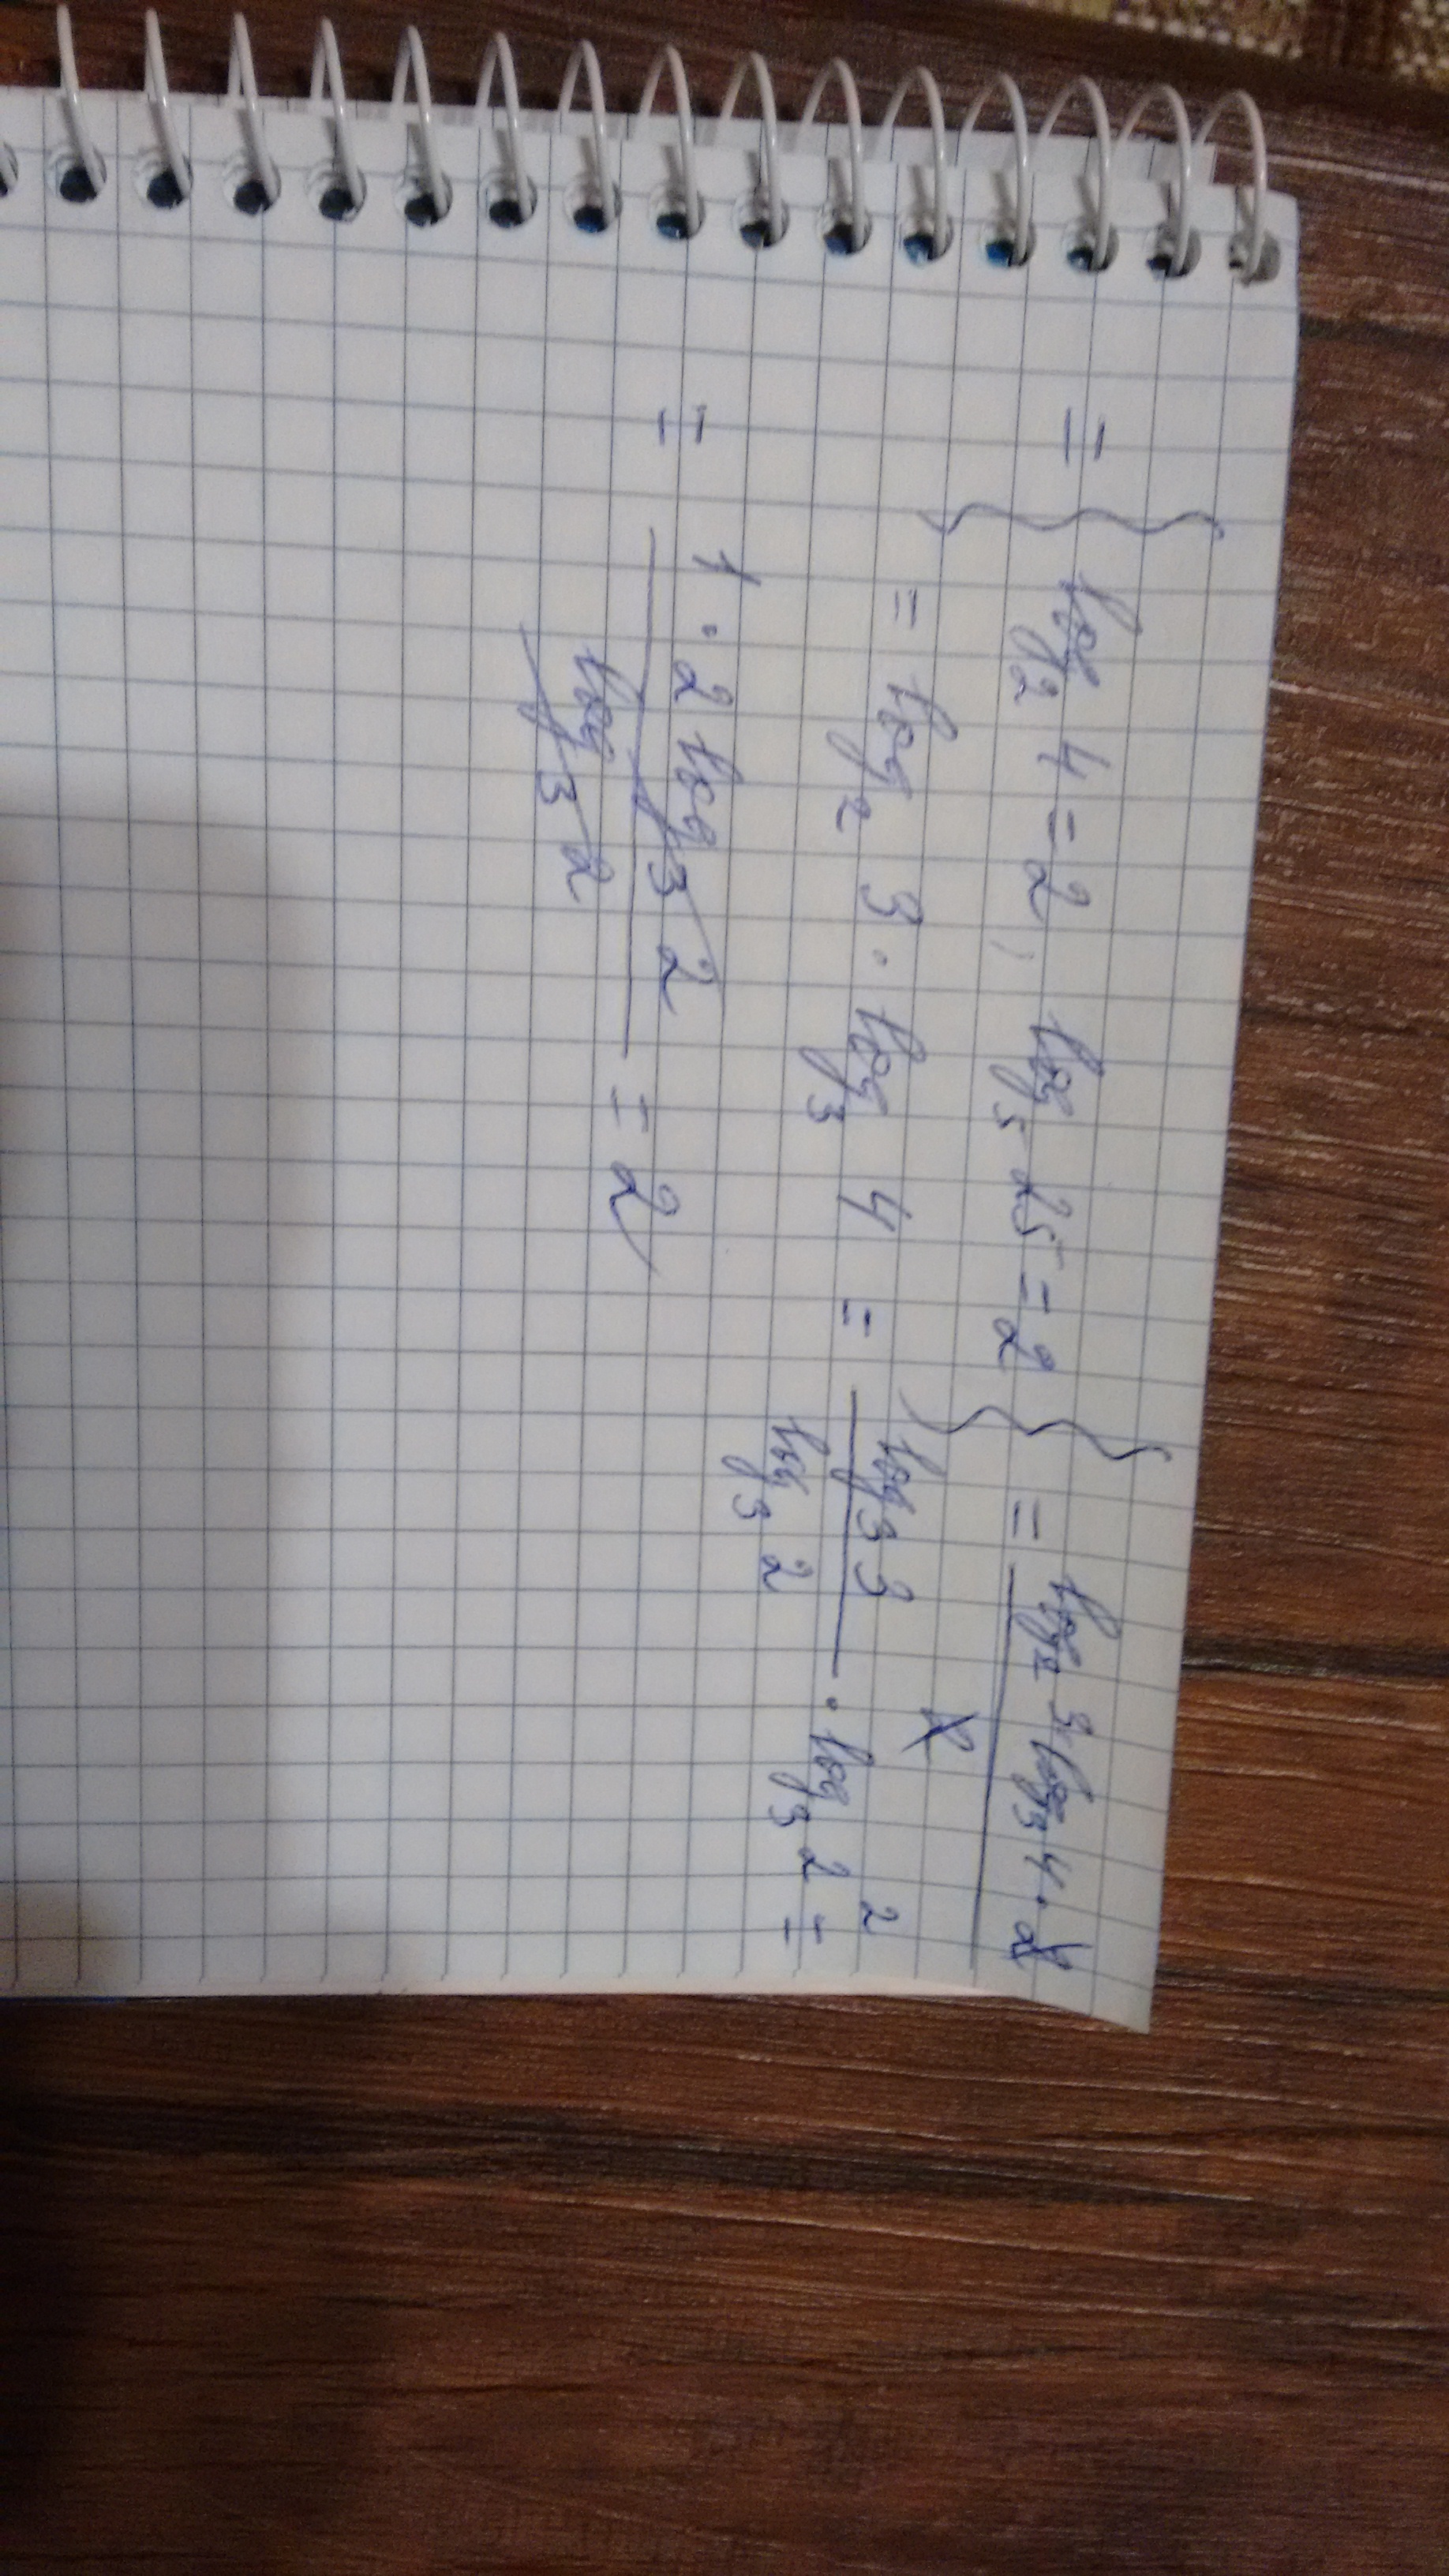 = { log₂ 4 = 2, log₅ 25 = 2 } = (log₂ 3 · log₃ 4 · 2) / 2
= log₂ 3 · log₃ 4 = (log₃ 3) / (log₃ 2) · log₃ 2² =
= (1 · 2 log₃ 2) / (log₃ 2) = 2